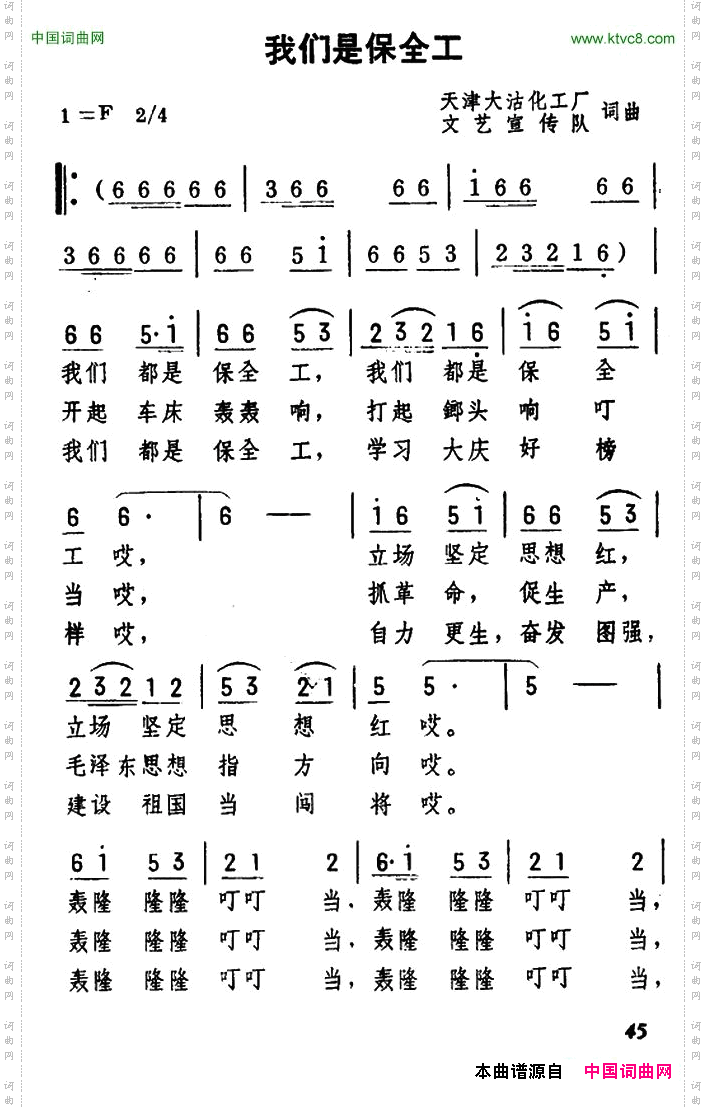 中国词曲网
我们是保全工
www.ktvc8.com
1=F 2/4
天津大沽化工厂
文艺宣传队 词曲
(6 6 6 6 6 6 | 3 6 6 6 6 | i 6 6 6 6 |
3 6 6 6 6 6 | 6 6 5 i | 6 6 5 3 | 2 3 2 1 6) |
6 6 5· i | 6 6 5 3 | 2 3 2 1 6 | i 6 5 i |
我们 都是 保全 工, 我们 都是 保 全
开起 车床 轰轰 响, 打起 鎯头 响 叮
我们 都是 保全 工, 学习 大庆 好 榜
6 6· | 6 — | i 6 5 i | 6 6 5 3 |
工 哎, 立场 坚定 思想 红,
当 哎, 抓革 命, 促生 产,
样 哎, 自力 更生, 奋发 图强,
2 3 2 1 2 | 5 3 2 1 | 5 5· | 5 — |
立场 坚定 思 想 红 哎。
毛泽东思想 指 方 向 哎。
建设 祖国 当 闯 将 哎。
6 i 5 3 | 2 1 2 | 6· i 5 3 | 2 1 2 |
轰隆 隆隆 叮叮 当, 轰隆 隆隆 叮叮 当,
轰隆 隆隆 叮叮 当, 轰隆 隆隆 叮叮 当,
轰隆 隆隆 叮叮 当, 轰隆 隆隆 叮叮 当,
45
本曲谱源自 中国词曲网